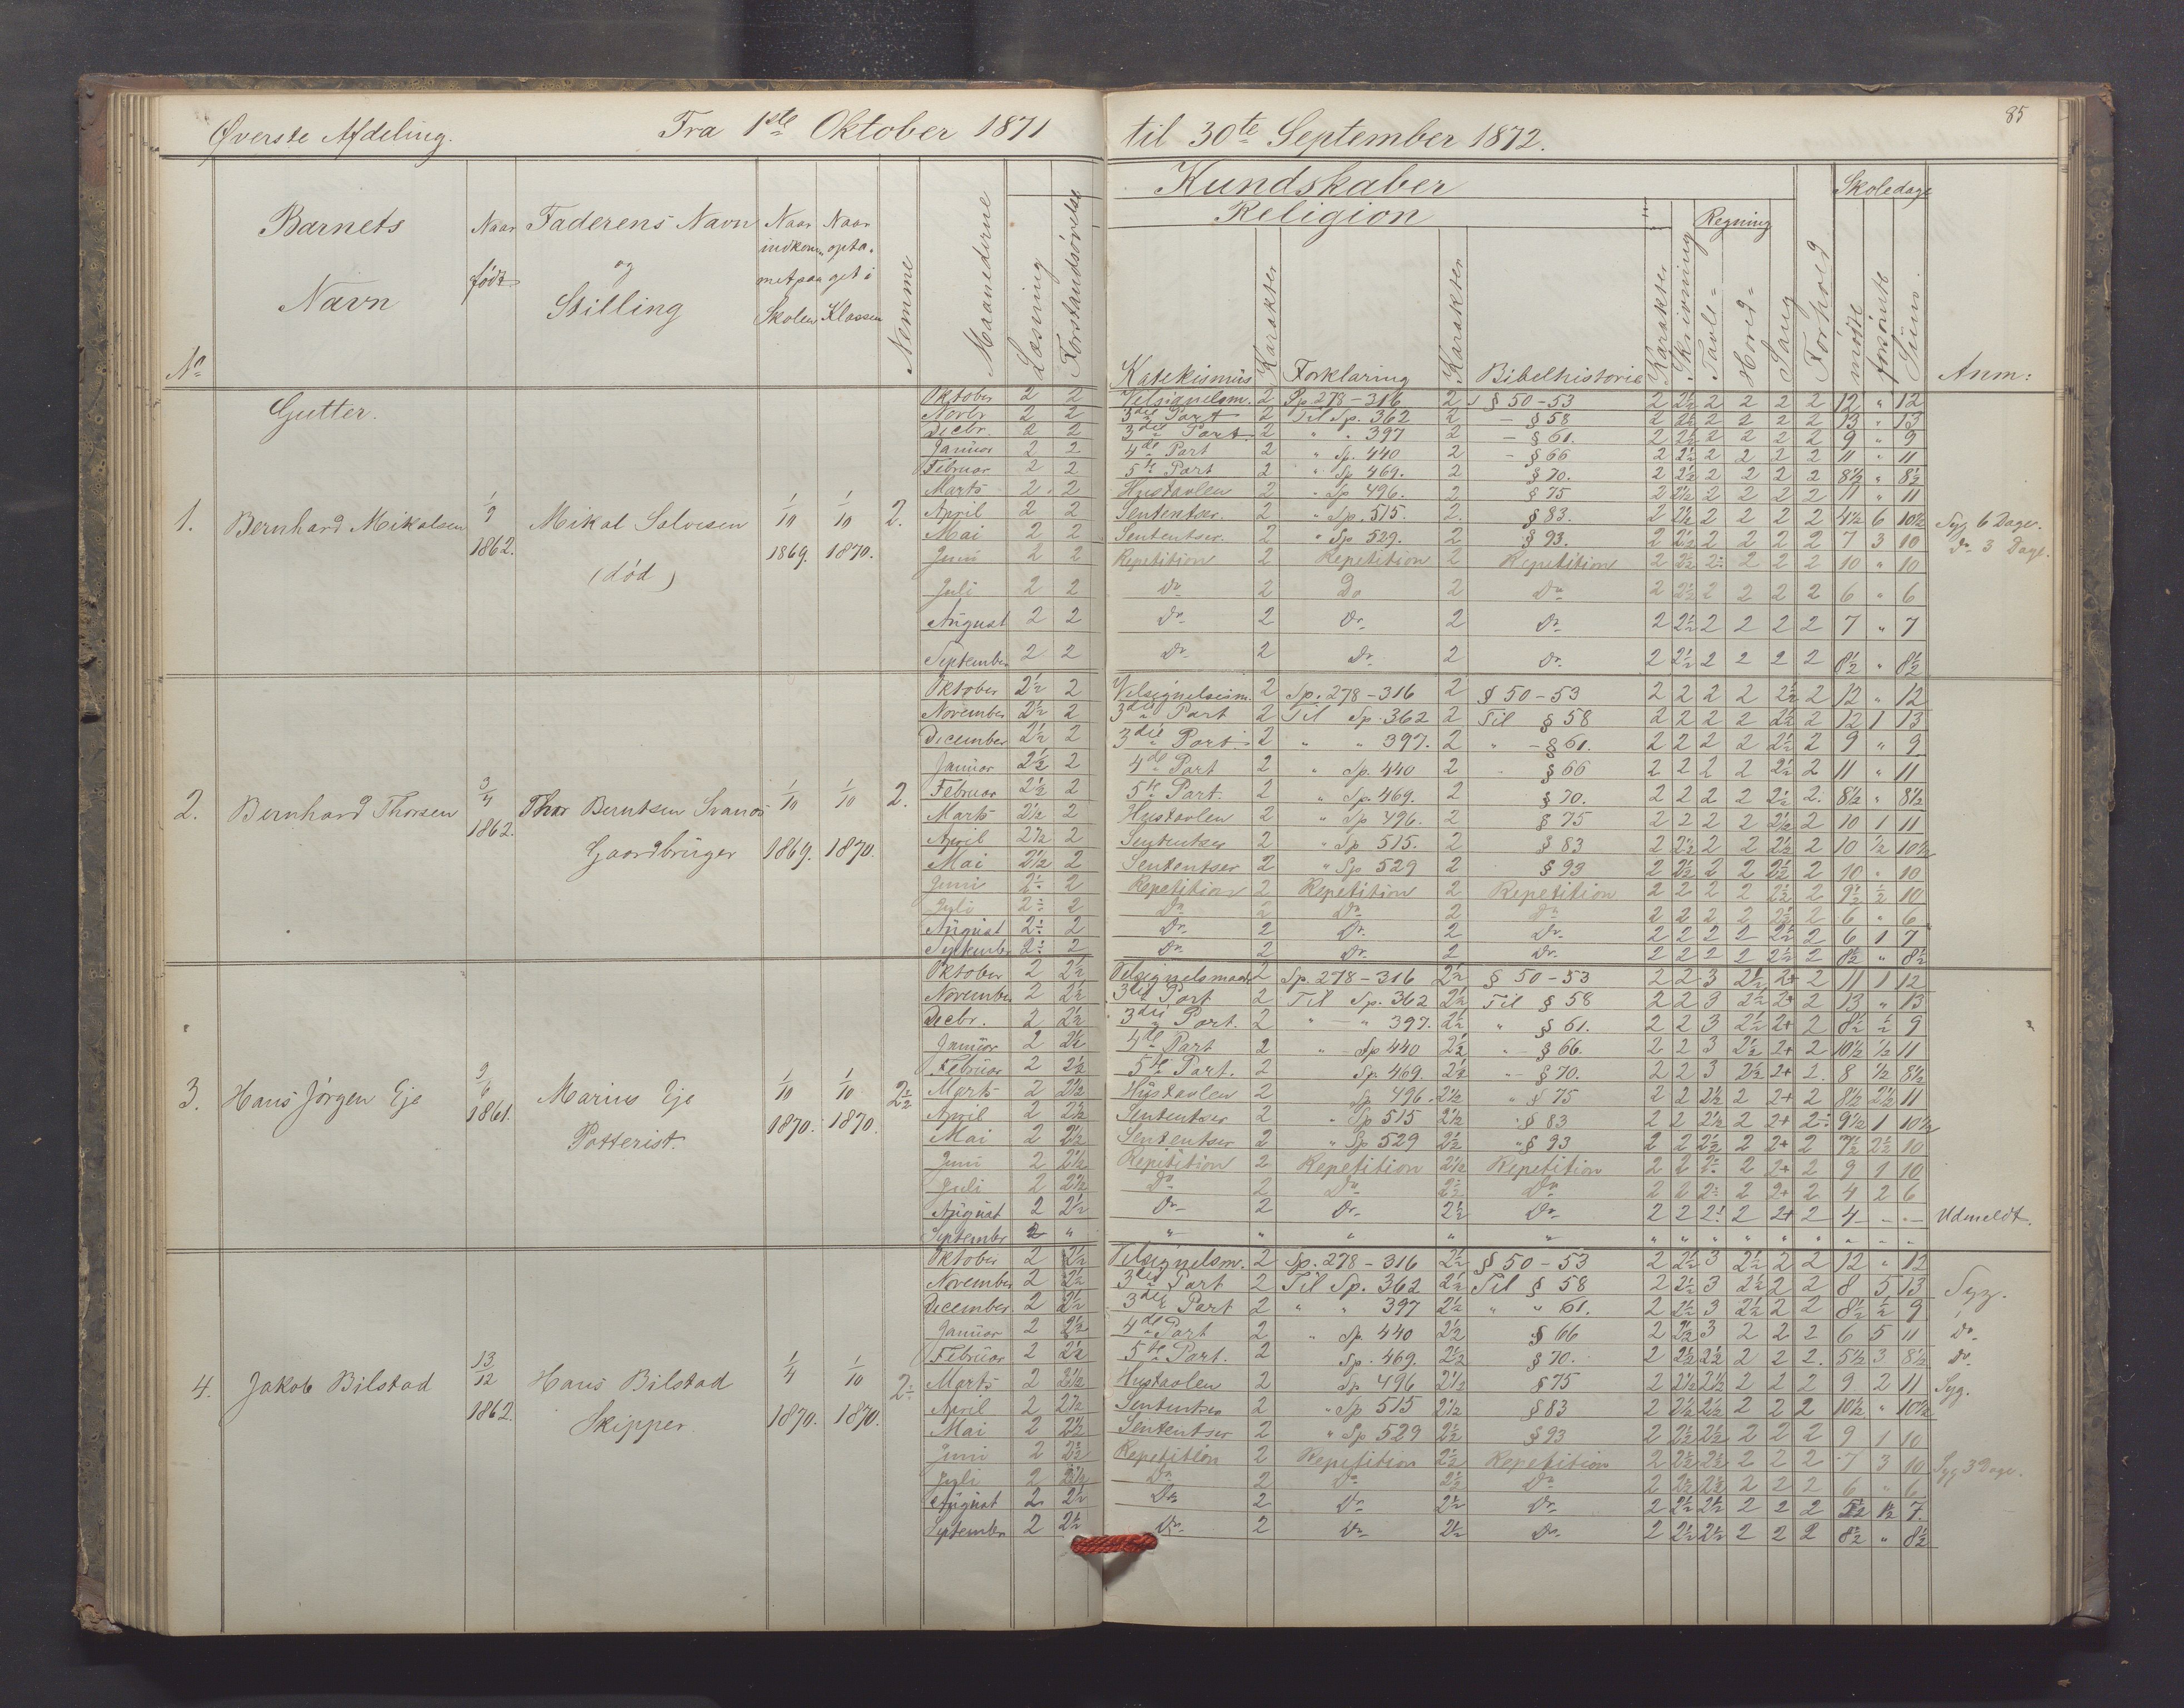 85
Øverste Afdeling. Fra 1ste Oktober 1871 til 30te September 1872.
No
Barnets Navn
Naar født
Faderens Navn og Stilling
Naar indkommet paa Skolen
Naar optaget i Klassen
Nemme
Maanederne
Læsning
Forstandsøvelse
Kundskaber
Religion
Katekismus
Karakter
Forklaring
Karakter
Bibelhistorie
Karakter
Skrivning
Regning
Tavle-
Hoved-
Sang
Forhold
Skoledage
mødte
forsømte
Sum.
Anm:
Gutter.
1. Bernhard Mikalsen 1/9 1862. Mikal Salvesen (død) 1/10 1869. 1/10 1870. 2.
Oktober 2 2 Velsignelsm. 2 Sp. 278-316 2 § 50-53 2 2½ 2 2 2 2 12 " 12
Novbr 2 2 3die Part 2 Til Sp. 362 2 - § 58 2 2½ 2 2 2 2 13 " 13
Decbr. 2 2 3die Part 2 " " 397 2 - § 61. 2 2½ 2 2 2 2 9 " 9
Januar 2 2 4de Part 2 " Sp. 440 2 - § 66 2 2½ 2 2 2 2 11 " 11
Februar 2 2 5te Part 2 " Sp 469. 2 § 70. 2 2½ 2 2 2 2 8½ " 8½
Marts 2 2 Hustavlen 2 " Sp 496. 2 § 75 2 2½ 2 2 2 2 11 " 11
April 2 2 Sententser. 2 " Sp. 515. 2 § 83. 2 2½ 2 2 2 2 4½ 6 10½ Syg 6 Dage.
Mai 2 2 Sententser. 2 " Sp 529. 2 § 93. 2 2½ 2 2 2 2 7 3 10 Do 3 Dage.
Juni 2 2 Repetition 2 Repetition 2 Repetition 2 2½ 2÷ 2 2 2 10 " 10
Juli 2 2 Do 2 Do 2 Do 2 2½ 2 2 2 2 6 " 6
August 2 2 Do 2 Do. 2 Do 2 2½ 2 2 2 2 7 " 7
September 2 2 Do. 2 Do. 2 Do. 2 2½ 2 2 2 2 8½ " 8½
2. Bernhard Thorsen 3/4 1862. Thor Berntsen Svanøe Gaardbruger 1/10 1869. 1/10 1870. 2.
Oktober 2½ 2 Velsignelsem. 2 Sp. 278-316 2 § 50-53 2 2 2 2 2½ 2 12 " 12
November 2½ 2 3die Part 2 Til Sp. 362 2 Til § 58 2 2 2 2 2½ 2 12 1 13
December 2½ 2 3die Part. 2 " " 397. 2 " - § 61. 2 2 2 2 2½ 2 9 " 9
Januar 2½ 2 4de Part 2 " Sp. 440 2 § 66 2 2 2 2 2½ 2 11 " 11
Februar 2½ 2 5te Part. 2 " Sp. 469. 2 § 70. 2 2 2 2 2½ 2. 8½ " 8½
Marts 2½ 2 Hustavlen 2 " Sp 496. 2 § 75 2 2 2 2 2½ 2 10 1 11
April 2½ 2 Sententser 2 " Sp 515. 2 § 83 2 2½ 2 2 2½ 2 10 ½ 10½
Mai 2½ 2 Sententser 2 " Sp 529 2 § 93 2 2½ 2 2 2½ 2 10 " 10
Juni 2÷ 2 Repetition 2 Repetition 2 Repetition 2 2 2 2 2½ 2 9½ ½ 10
Juli 2÷ 2 Do 2 Do 2 Do 2 2 2 2 2½ 2 6 " 6
August 2÷ 2 Do. 2 Do. 2 Do. 2 2 2 2 2½ 2 6 1 7
September 2÷ 2 Do. 2 Do. 2 Do. 2 2 2 2 2½ 2 8½ " 8½
3. Hans Jørgen Eje 1861. Marius Eje Potterist. 1/10 1870. 1/10 1870. 2½
Oktober 2 2½ Velsignelsmaade 2 Sp. 278-316 2½ § 50-53 2 2 3 2½ 2+ 2 11 1 12
November 2 2½ 3die Part 2 Til Sp. 362 2½ Til § 58 2 2 3 2½ 2+ 2 13 " 13
Decbr. 2 2½ 3die Part. 2 " - " 397. 2½ " § 61. 2 2 3 2½ 2+ 2 8½ ½ 9
Januar 2 2½ 4de Part 2 " - Sp 440 2½ " - § 66. 2 2 3 2½ 2+ 2 10½ ½ 11
Februar 2 2½ 5te Part. 2 Sp. 469 2½ " - § 70. 2 2 3 2½ 2+ 2. 8 ½ 8½
Marts 2 2½ Hustavlen 2 Sp 496. 2½ " § 75 2 2 2½ 2 2+ 2 8½ 2½ 11
April 2 2½ Sententser 2 " Sp 515 2½ " § 83 2 2 2½ 2 2+ 2÷ 9½ 1 10½
Mai 2 2½ Sententser 2 " Sp 529 2½ " § 93 2 2 2½ 2 2+ 2 7½ 2½ 10
Juni 2 2½ Repitition 2 Repetition 2½ Repetition 2 2 2÷ 2 2+ 2 9 1 10
Juli 2 2½ Do 2 Do 2½ Do 2 2 2÷ 2 2+ 2 4 2 6
August 2 2½ Do 2 Do. 2½ Do. 2 2 2÷ 2 2+ 2 4 - - Udmeldt.
Septembr 2 " " " " " " " " " " " " " - "
4. Jakob Bilstad 13/12 1862. Hans Bilstad Skipper. 1/4 1870. 1/10 1870. 2÷
Oktober 2 2½ Velsignelsm. 2 Sp. 278-316 2½ § 50-53 2 2½ 3 2½ 2 2 12 " 12
November 2 2½ 3die Part 2 Til Sp. 362 2½ Til § 58 2 2½ 3 2½ 2 2 8 5 13 Syg.
December 2 2½ 3die Part 2 " " 397 2½ " " 61. 2 2½ 3 2½ 2 2 8½ ½ 9
Januar 2 2½ 4de Part 2 " Sp. 440 2½ § 66 2 2½ 3 2 2 2 6 5 11 Do
Februar 2 2½ 5te Part. 2 Sp. 469. 2½ § 70. 2 2½ 2½ 2 2 2. 5½ 3 8½ Do
Marts 2 2½ Hustavlen 2 Sp 496 2½ § 75 2 2½ 2½ 2 2 2 9 2 11 Syg.
April 2 2½ Sententser 2 " Sp 515 2½ § 83 2 2½ 2½ 2 2 2 10½ " 10½
Mai 2 2½ Sententser 2 " Sp 529 2½ § 93 2 2½ 2½ 2 2 2 9 1 10
Juni 2 2½ Repetition 2 Repetition 2½ Repetition 2 2½ 2½ 2 2 2 7 3 10 Syg 3 Dage.
Juli 2 2½ Do 2 Do 2½ Do 2 2½ 2½ 2 2 2 6 " 6
August 2 2½ Do 2 Do. 2½ Do. 2 2½ 2½ 2 2 2 5½ 1½ 7.
September 2 2½ Do. 2 Do. 2½ Do. 2 2½ 2½ 2 2 2 8½ " 8½